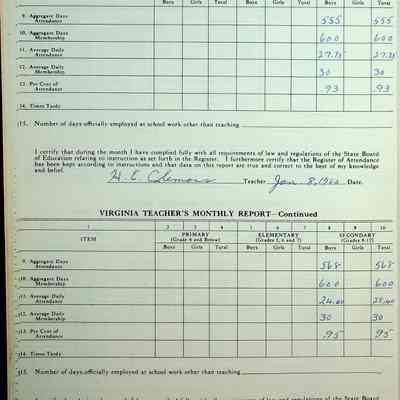 Boys Girls Total Boys Girls Total Boys Girls Total
9. Aggregate Days Attendance 555 555
10. Aggregate Days Membership 600 600
11. Average Daily Attendance 27.75 27.75
12. Average Daily Membership 30 30
13. Per Cent of Attendance .93 .93
14. Times Tardy
15. Number of days officially employed at school work other than teaching
I certify that during the month I have complied fully with all requirements of law and regulations of the State Board
of Education relating to instruction as set forth in the Register. I furthermore certify that the Register of Attendance
has been kept according to instructions and that data on this report are true and correct to the best of my knowledge
and belief.
H. E. Clemons Teacher Jan. 8, Date.
VIRGINIA TEACHER'S MONTHLY REPORT—Continued
1 2 3 4 5 6 7 8 9 10
ITEM PRIMARY (Grade 4 and Below) ELEMENTARY (Grades 5, 6 and 7) SECONDARY (Grades 8-12)
Boys Girls Total Boys Girls Total Boys Girls Total
9. Aggregate Days Attendance 568 568
10. Aggregate Days Membership 600 600
11. Average Daily Attendance
12. Average Daily Membership 30 30
13. Per Cent of Attendance .95 .95
14. Times Tardy
15. Number of days officially employed at school work other than teaching